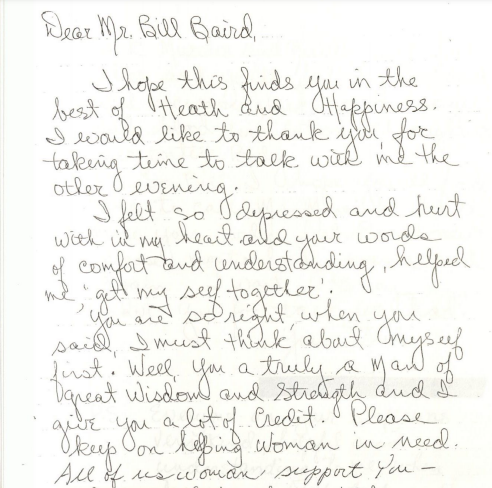 Dear Mr. Bill Baird,
I hope this finds you in the
best of Heath and Happiness.
I would like to thank you for
taking time to talk with me the
other evening.
I felt so depressed and hurt
with in my heart and your words
of comfort and understanding, helped
me, "get my seef together".
You are so right, when you
said, I must think about myseef
first. Well, you a truly a Man of
great Wisdom and Strength and I
give you a lot of Credit. Please
keep on helping Woman in need.
All of us woman support You –